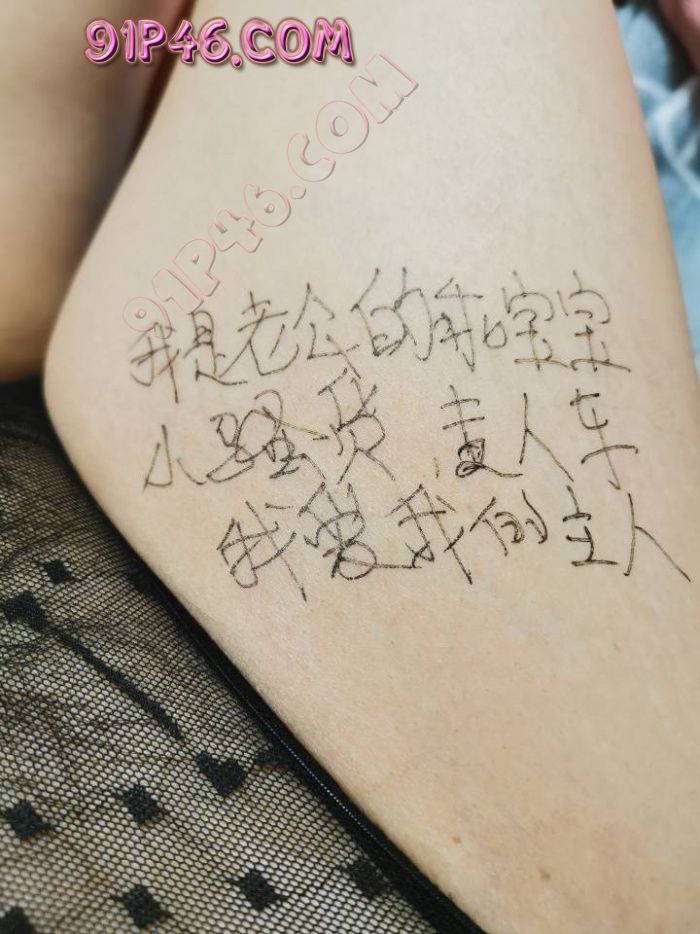 91P46.COM
91P46.COM
我是老公的乖宝宝
小骚货 主人车
我爱我的主人